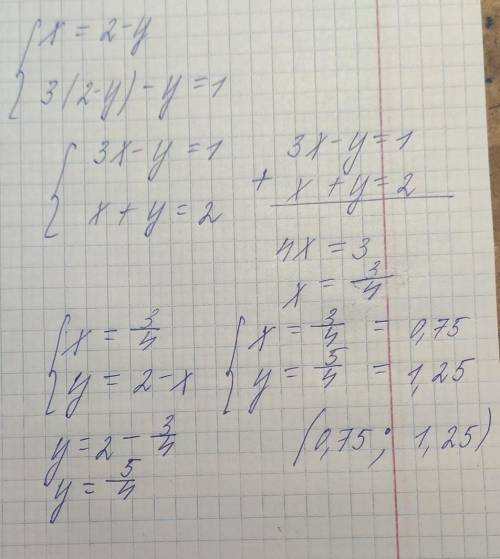 { x = 2 - y
3(2-y) - y = 1
{ 3x - y = 1
x + y = 2
3x - y = 1
+ x + y = 2
4x = 3
x = 3/4
{ x = 3/4
y = 2 - x
{ x = 3/4 = 0,75
y = 5/4 = 1,25
y = 2 - 3/4
y = 5/4
(0,75; 1,25)